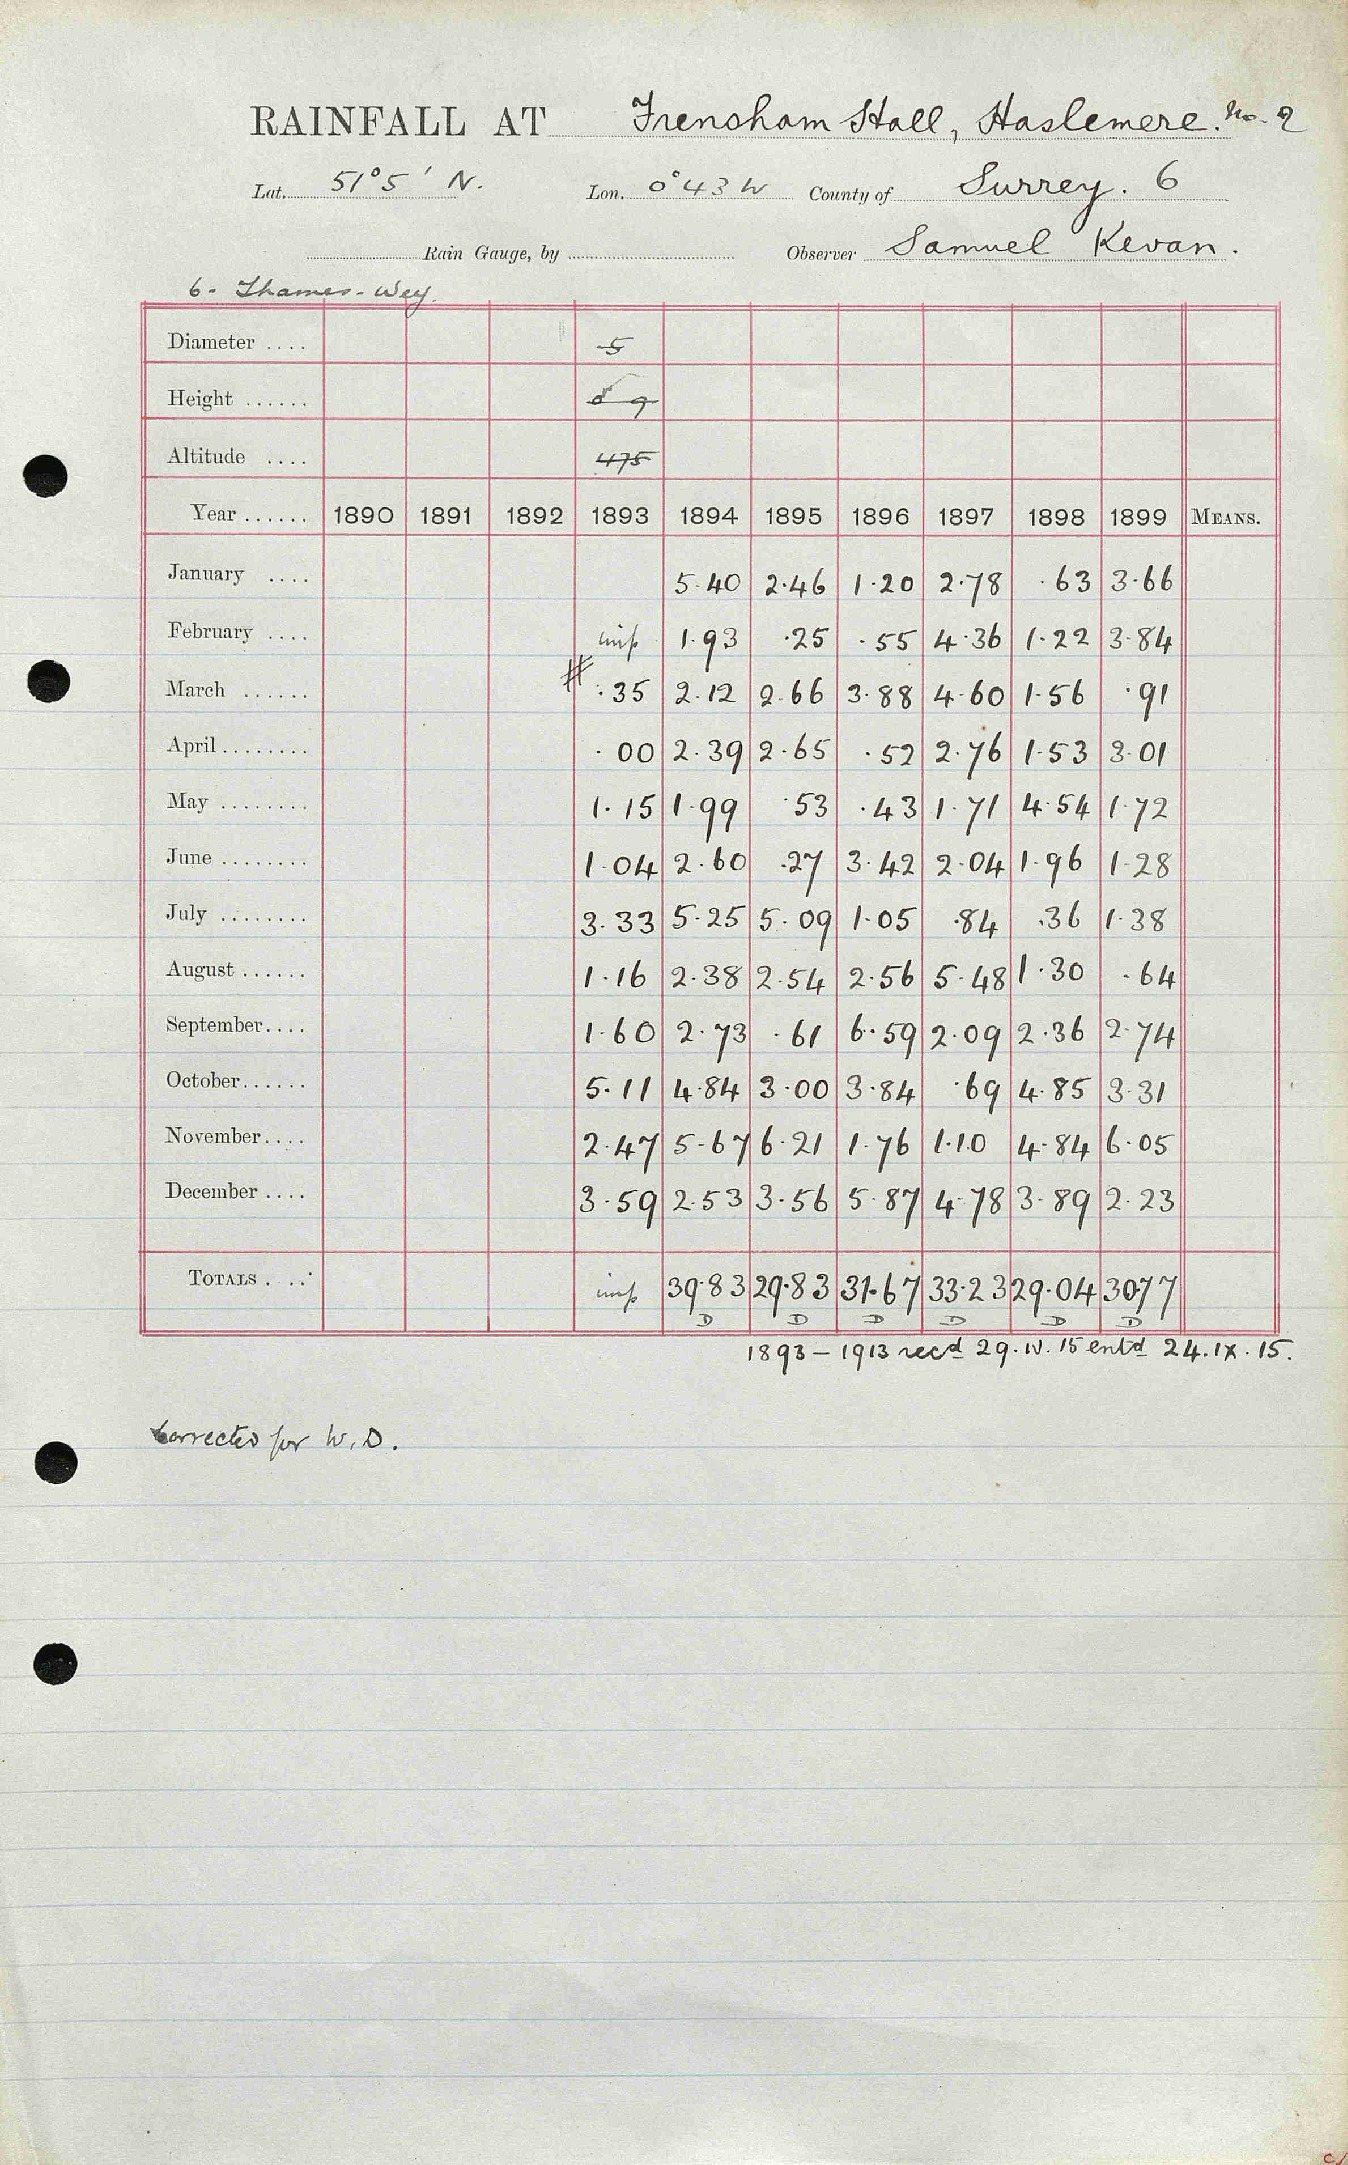 RAINFALL AT Frensham Hall, Haslemere. No. 2
Lat. 51°5' N. Lon. 0°43 W County of Surrey. 6
Rain Gauge, by Observer Samuel Kevan.
6. Thames-Wey.
Diameter .... 5
Height ...... 9
Altitude .... 475
Year ...... 1890 1891 1892 1893 1894 1895 1896 1897 1898 1899 MEANS.
January .... 5.40 2.46 1.20 2.78 .63 3.66
February .... imp 1.93 .25 .55 4.36 1.22 3.84
March ...... # .35 2.12 2.66 3.88 4.60 1.56 .91
April ........ .00 2.39 2.65 .52 2.76 1.53 3.01
May ........ 1.15 1.99 .53 .43 1.71 4.54 1.72
June ........ 1.04 2.60 .27 3.42 2.04 1.96 1.28
July ........ 3.33 5.25 5.09 1.05 .84 .36 1.38
August ...... 1.16 2.38 2.54 2.56 5.48 1.30 .64
September.... 1.60 2.73 .61 6.59 2.09 2.36 2.74
October...... 5.11 4.84 3.00 3.84 .69 4.85 3.31
November.... 2.47 5.67 6.21 1.76 1.10 4.84 6.05
December .... 3.59 2.53 3.56 5.87 4.78 3.89 2.23
TOTALS . ... imp 39.83 29.83 31.67 33.23 29.04 30.77
D D D D D D
1893-1913 recd 29.IV.15 entd 24.IX.15.
Corrected for W.D.